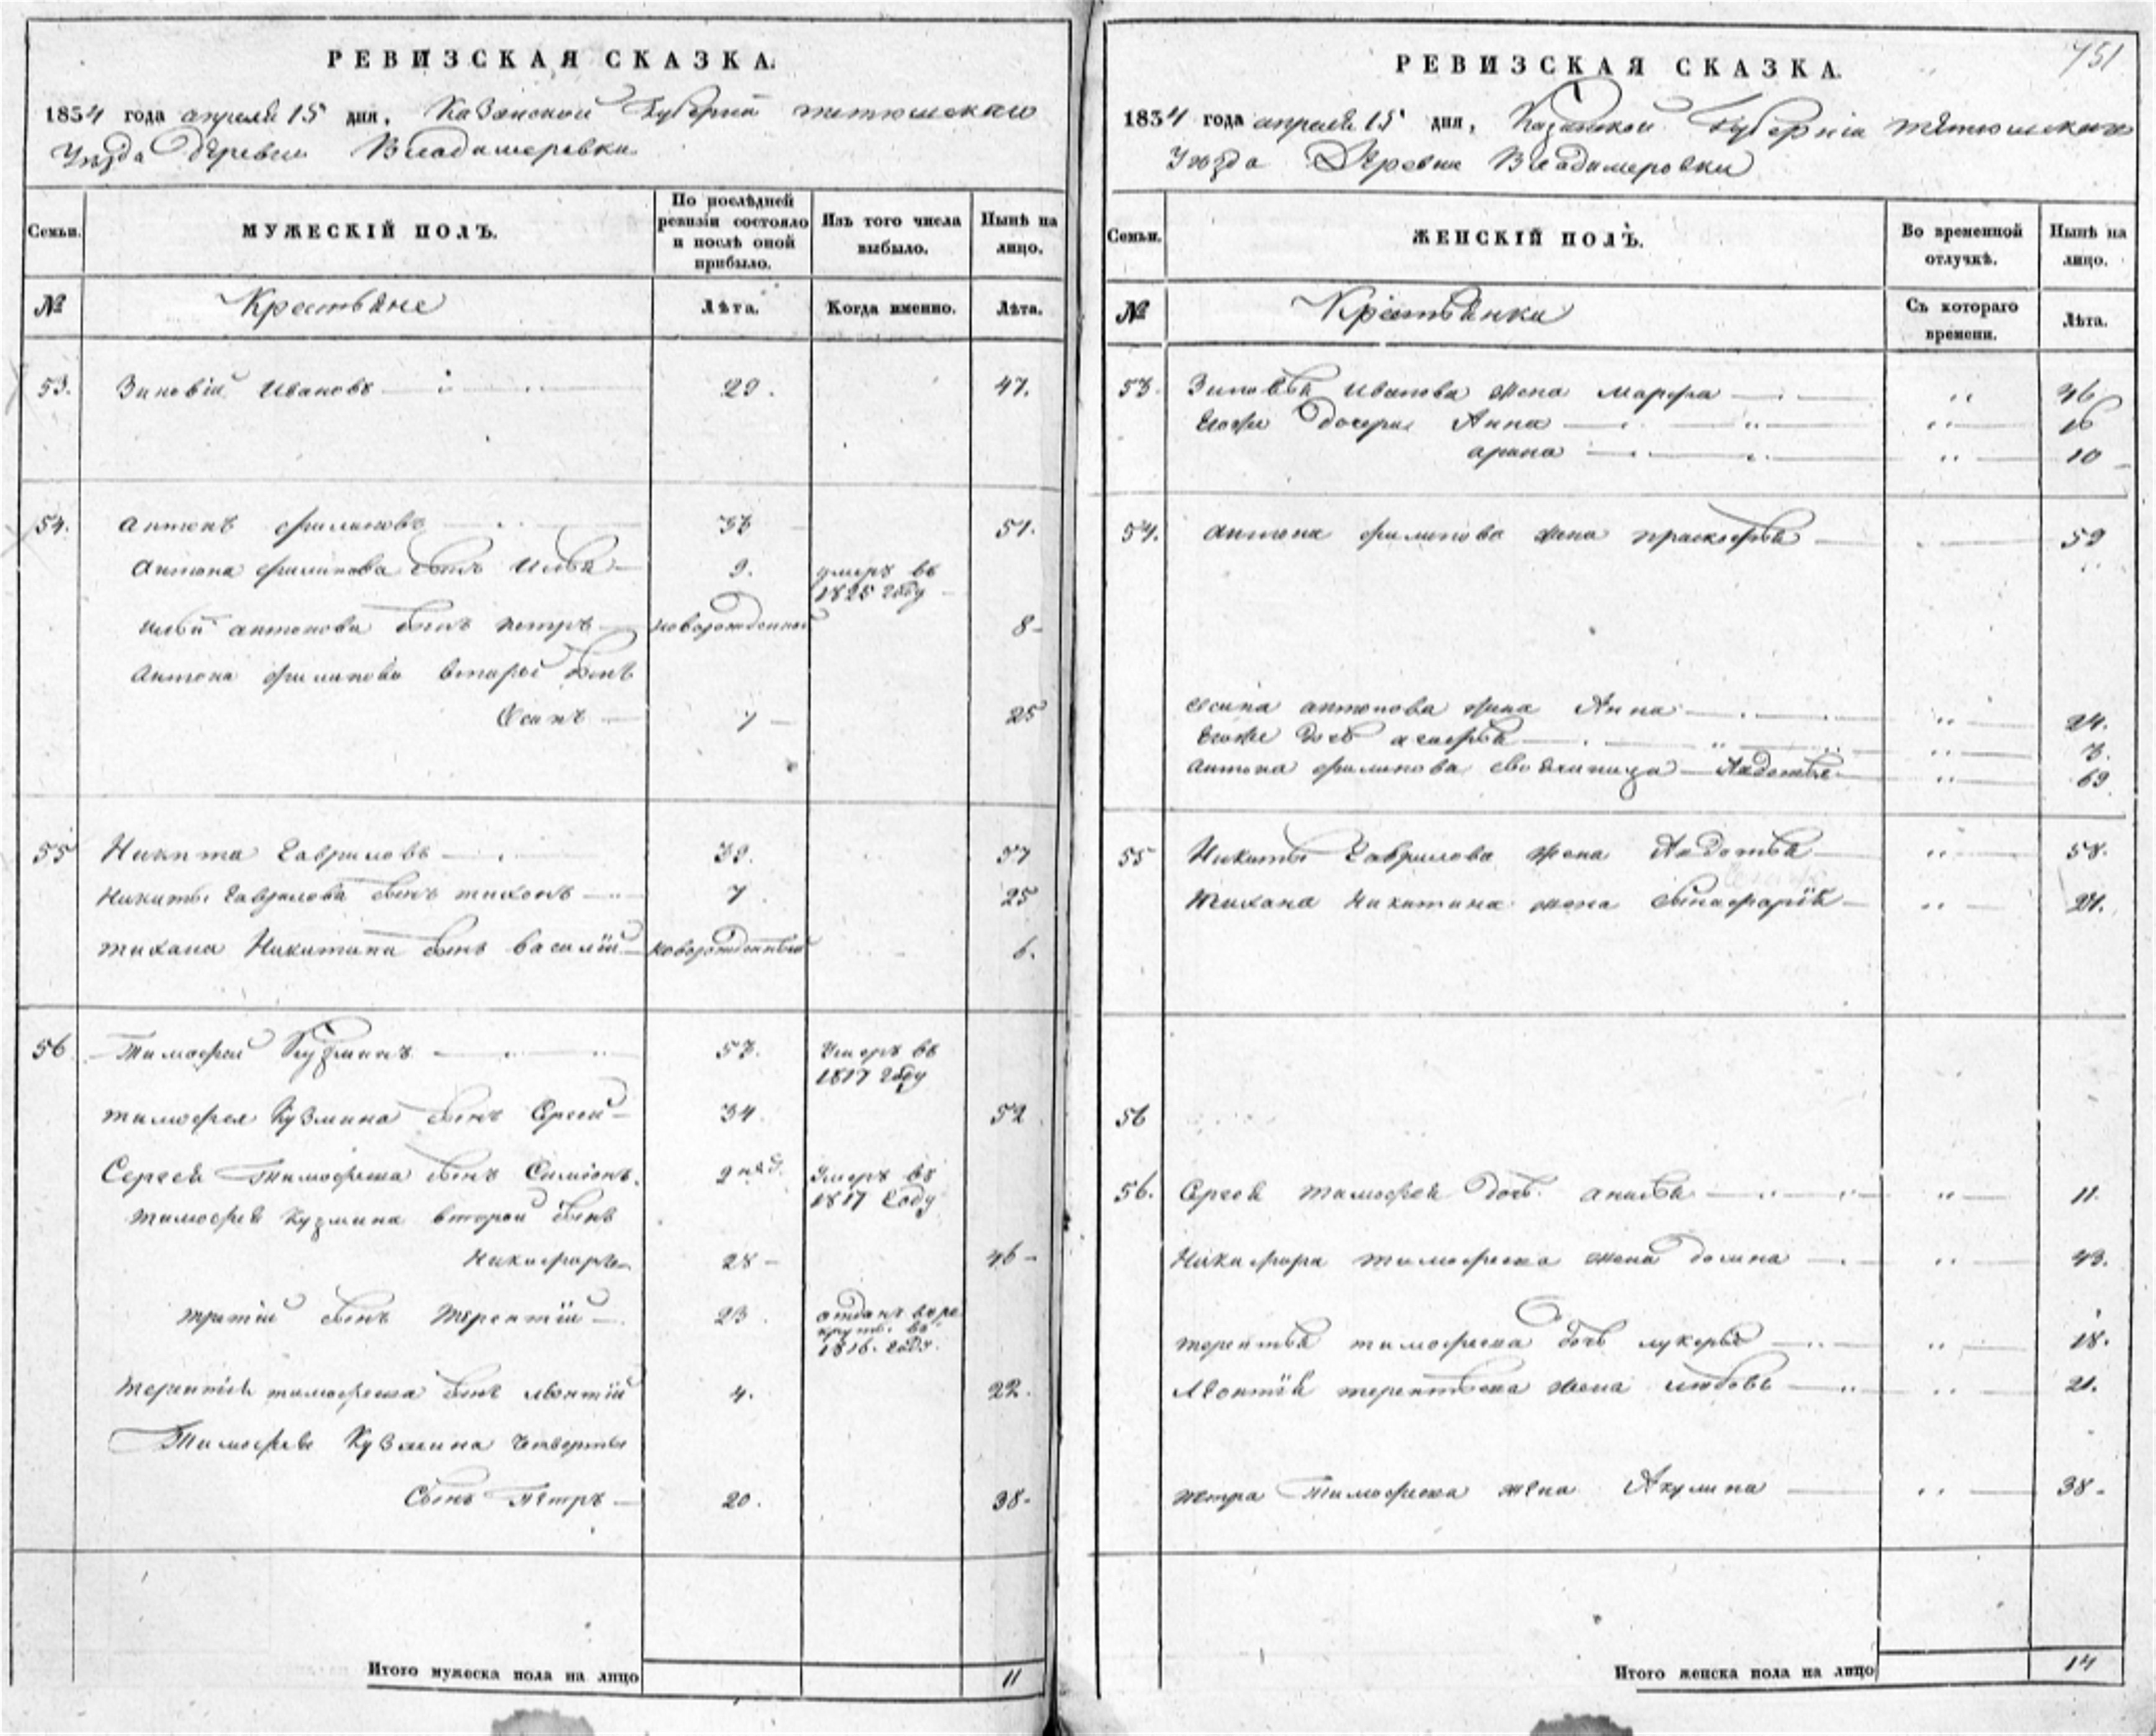 РЕВИЗСКАЯ СКАЗКА.
1834 года апреля 15 дня, Казанской Губернии тетюшскаго
Уезда деревни Владимеровки
Семьи.
МУЖЕСКІЙ ПОЛЪ.
По послѣдней ревизіи состояло и послѣ оной прибыло.
Изъ того числа выбыло.
Нынѣ на лицо.
№ Крестьяне Лѣта. Когда именно. Лѣта.
53. Зиновій Ивановъ 29. 47.
54. Антонъ филиповъ 33 51.
Антона филипова сынъ Илья 9. умеръ въ 1825 году
Ильи антонова сынъ петръ новорожденный 8
Антона филипова вторый сынъ
Осипъ 7 25
55 Никита Гавриловъ 39. 57
Никиты Гаврилова сынъ тихонъ 7 25
тихана Никитина сынъ василій новорожденный 6.
56 Тимофей Кузминъ 53. Умеръ въ 1817 году
тимофея Кузмина сынъ Сргей 34. 52
Сергея Тимофеева сынъ Симіонъ. 2 нед. Умеръ въ 1817 Году
тимофея Кузмина второй сынъ
Никифоръ 28 46
третій сынъ терентій 23. отданъ в рекруты въ 1816 году.
терентія тимофеева сынъ леонтій 4. 22.
Тимофея Кузмина четверты
Сынъ Петръ 20. 38
Итого мужеска пола на лицо 11
751
РЕВИЗСКАЯ СКАЗКА.
1834 года апреля 15 дня, Казанской Губерніи тетюшскаго
Уезда Деревни Владимеровки
Семьи.
ЖЕНСКІЙ ПОЛЪ.
Во временной отлучкѣ.
Нынѣ на лицо.
№ Крестьянки Съ котораго времени. Лѣта.
53. Зиновья Иванова жена марфа 46
Егоже дочери Анна 16
арина 10
54. антона филипова жена прасковья 59
осипа антонова жена Анна 24.
Егоже дочь агафья 3.
антона филипова своячиница Авдотья 69
55 Никиты Гаврилова жена Авдотья 58.
Тихана Никитина жена 21.
56
56. Сргея тимофея дочь анисья 11.
Никифора тимофеева жена домна 43.
терентья тимофеева дочь лукерья 18.
Леонтія терентьева жена любовь 21.
петра Тимофеева жена Акулина 38
Итого женска пола на лицо 14